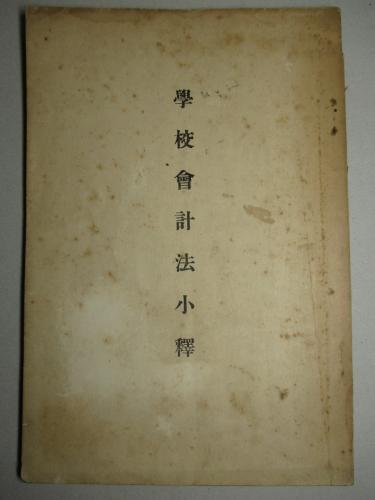 學校會計法小釋